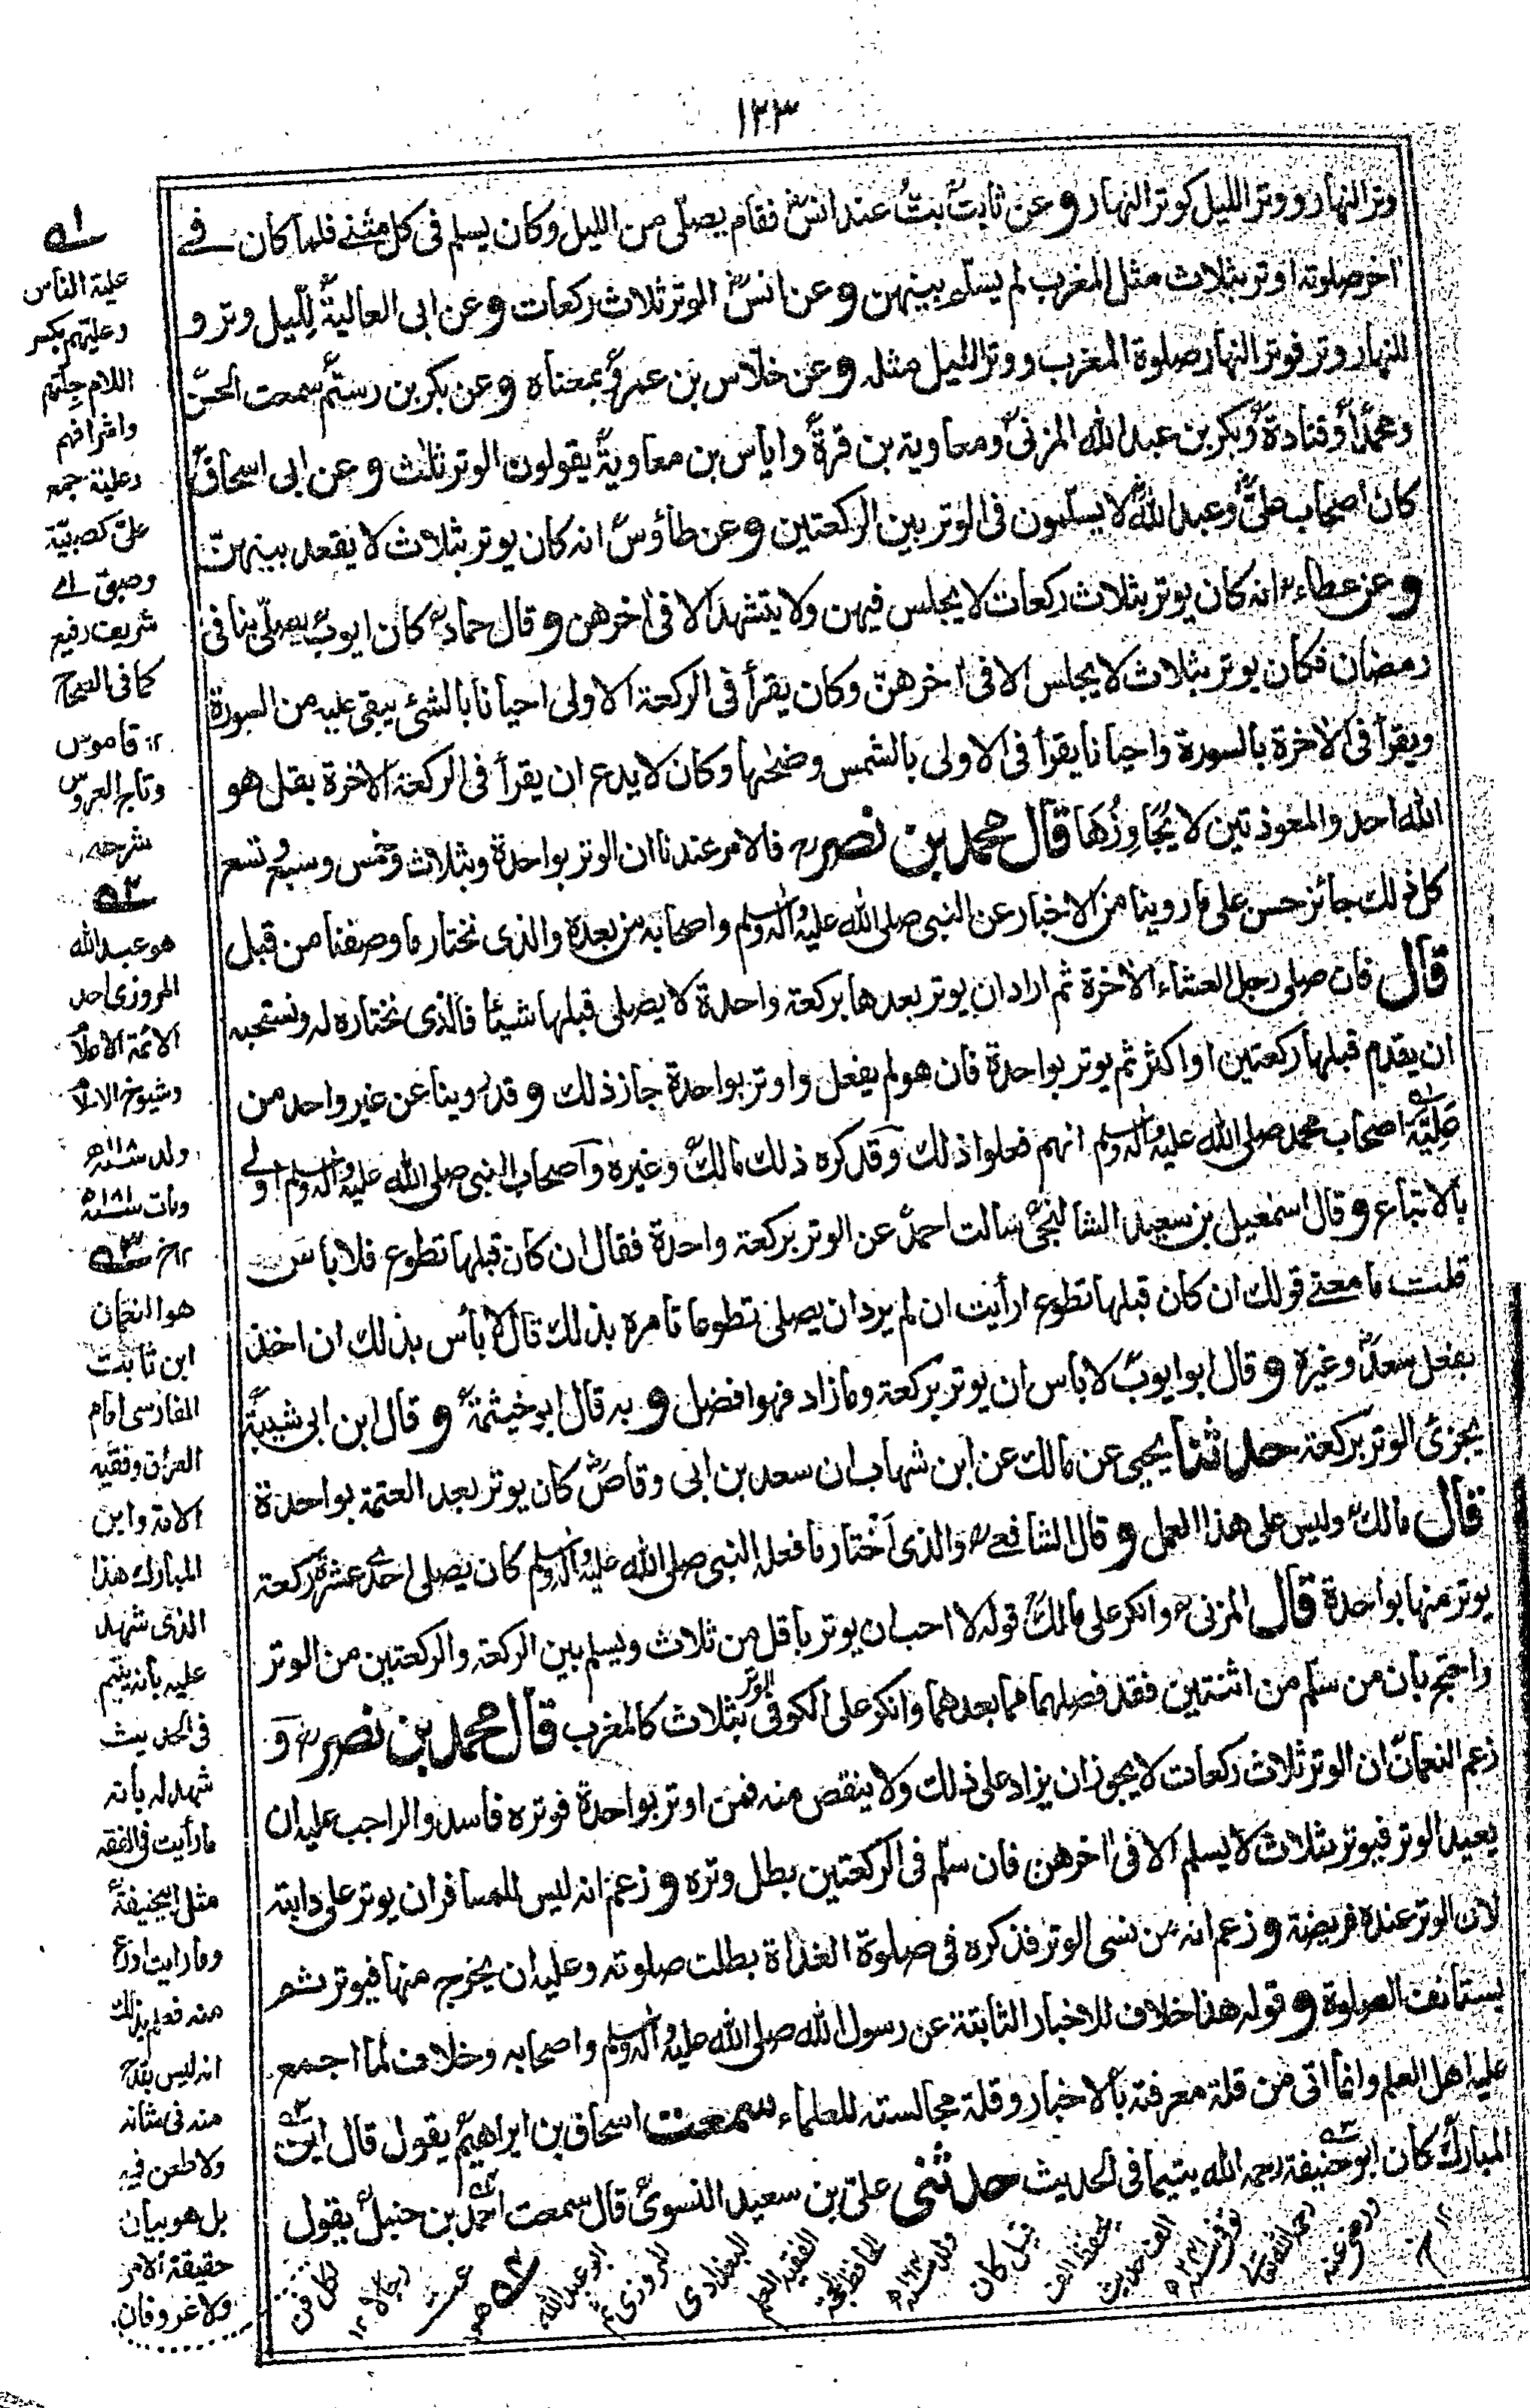 ١٢٣
وتر النهار ووتر الليل كوتر النهار وعن ثابتؒ بتُّ عند انسؓ فقام يصلى من الليل وكان يسلم فى كل مثنے فلما كان فے
اخر صلوته اوتر بثلاث مثل المغرب لم يسلم بينهن وعن انسؓ الوتر ثلاث ركعات وعن ابى العاليةؒ لليل وتر و
للنهار وتر فوتر النهار صلوة المغرب ووتر الليل مثله وعن خلاس بن عمروؒ بمعناه وعن بكر بن رستمؒ سمعت الحسنؒ
ومحمداؒ وقتادةؒ وبكر بن عبد الله المزنىؒ ومعاوية بن قرةؒ واياس بن معاويةؒ يقولون الوتر ثلث وعن ابى اسحاقؒ
كان اصحاب علىؓ وعبد اللهؓ لا يسلمون فى الوتر بين الركعتين وعن طاؤسؒ انه كان يوتر بثلاث لا يقعد بينهن
وعن عطاءؒ انه كان يوتر بثلاث ركعات لا يجلس فيهن ولا يتشهد الا فى اخرهن وقال حمادؒ كان ايوبؒ يصلى بنا فى
رمضان فكان يوتر بثلاث لا يجلس الا فى اخرهن وكان يقرأ فى الركعة الاولى احيانا بالشئ يبقى عليه من السورة
ويقرأ فى الاخرة بالسورة واحيانا يقرأ فى الاولى بالشمس وضحٰها وكان لا يدع ان يقرأ فى الركعة الاخرة بقل هو
الله احد والمعوذتين لا يُجَاوِزُهَا قال محمد بن نصرؒ فالامر عندنا ان الوتر بواحدة وبثلاث وخمس وسبع وتسع
كل ذلك جائز حسن على ما روينا من الاخبار عن النبى صلى الله عليه واٰله وسلم واصحابه من بعده والذى نختار ما وصفنا من قبل
قال فان صلى رجل العشاء الاخرة ثم اراد ان يوتر بعدها بركعة واحدة لا يصلى قبلها شيئا فالذى نختاره له ونستحبه
ان يقدم قبلها ركعتين او اكثر ثم يوتر بواحدة فان هو لم يفعل واوتر بواحدة جاز ذلك وقد روينا عن غير واحد من
عِلْيَةِ اصحاب محمد صلى الله عليه واٰله وسلم انهم فعلوا ذلك وقد كره ذلك مالكؒ وغيره واصحاب النبى صلى الله عليه واٰله وسلم اولے
بالاتباع وقال اسمٰعيل بن سعيد الشالنجىؒ سالت احمدؒ عن الوتر بركعة واحدة فقال ان كان قبلها تطوع فلا باس
قلت ما معنے قولك ان كان قبلها تطوع ارأيت ان لم يرد ان يصلى تطوعا تامره بذلك قال لا بأس بذلك ان اخذ
بفعل سعدؓ وغيره وقال ابو ايوبؒ لا باس ان يوتر بركعة وما زاد فهو افضل وبه قال ابو خيثمةؒ وقال ابن ابى شيبةؒ
يجزئ الوتر بركعة حدثنا يحيى عن مالك عن ابن شهاب ان سعد بن ابى وقاصؓ كان يوتر بعد العتمة بواحدة
قال مالكؒ وليس على هذا العمل وقال الشافعےؒ والذى اَخْتار ما فعله النبى صلى الله عليه واٰله وسلم كان يصلى احدے عشرة ركعة
يوتر منها بواحدة قال المزنىؒ وانكر على مالكؒ قوله لا احب ان يوتر باقل من ثلاث ويسلم بين الركعة والركعتين من الوتر
واحتج بان من سلم من اثنتين فقد فصلهما مما بعدهما وانكر على الكوفى الوتر بثلاث كالمغرب قال محمد بن نصرؒ و
زعم النعمانؒ ان الوتر ثلاث ركعات لا يجوز ان يزاد على ذلك ولا ينقص منه فمن اوتر بواحدة فوتره فاسد والواجب عليه ان
يعيد الوتر فيوتر بثلاث لا يسلم الا فى اخرهن فان سلم فى الركعتين بطل وتره وزعم انه ليس للمسافر ان يوتر على دابته
لان الوتر عنده فريضة وزعم انه من نسى الوتر فذكره فى صلوة الغداة بطلت صلوته وعليه ان يخرج منها فيوتر ثم
يستانف الصلوة وقوله هذا خلاف للاخبار الثابتة عن رسول الله صلى الله عليه واٰله وسلم واصحابه وخلاف لما اجمع
عليه اهل العلم وانما اتى من قلة معرفته بالاخبار وقلة مجالسته للعلماء سمعت اسحاق بن ابراهيمؒ يقول قال ابن
المباركؒ كان ابو حنيفة رحمه الله يتيما فى الحديث حدثنى علىّ بن سعيد النسوىؒ قال سمعت احمد بن حنبلؒ يقول
ه١
علية الناس
وعليّهم بكسر
اللام جِلّتهم
واشرافهم
وعلية جمع
علىّ كصبيّة
وصبىّ اے
شريف رفيع
كما فى الصحاح
١٢ قاموس
وتاج العروس
شرحه
ه٢
هو عبد الله
المروزى احد
الائمة الاعلام
وشيوخ الاسلام
ولد سنه ١١٨ه
ومات سنه ١٨١ه
١٢ ه٣
هو النعمان
ابن ثابت
الفارسى امام
العراق وفقيه
الامة وابن
المبارك هذا
الذى شهد
عليه بانه يتيم
فى الحديث
شهد له بانه
ما رأيت فى الفقه
مثل ابيحنيفةؒ
وما رايت اورع
منه فعلم بذلك
انه ليس بقدح
منه فى شانه
ولا طعن فيه
بل هو بيان
حقيقة الامر
ولا غرو فان
لكل فن
رجالا ١٢
ه٤ هو
ابو عبد الله
المروزى ثم
البغدادى
الفقيه العلم
الحافظ الحجة
ولد سنه ١٦٤ه
قيل كان
يحفظ الف
الف حديث
توفى سنه ٢٤١ه
رحمه الله تعالى
ورضى عنه
١٢